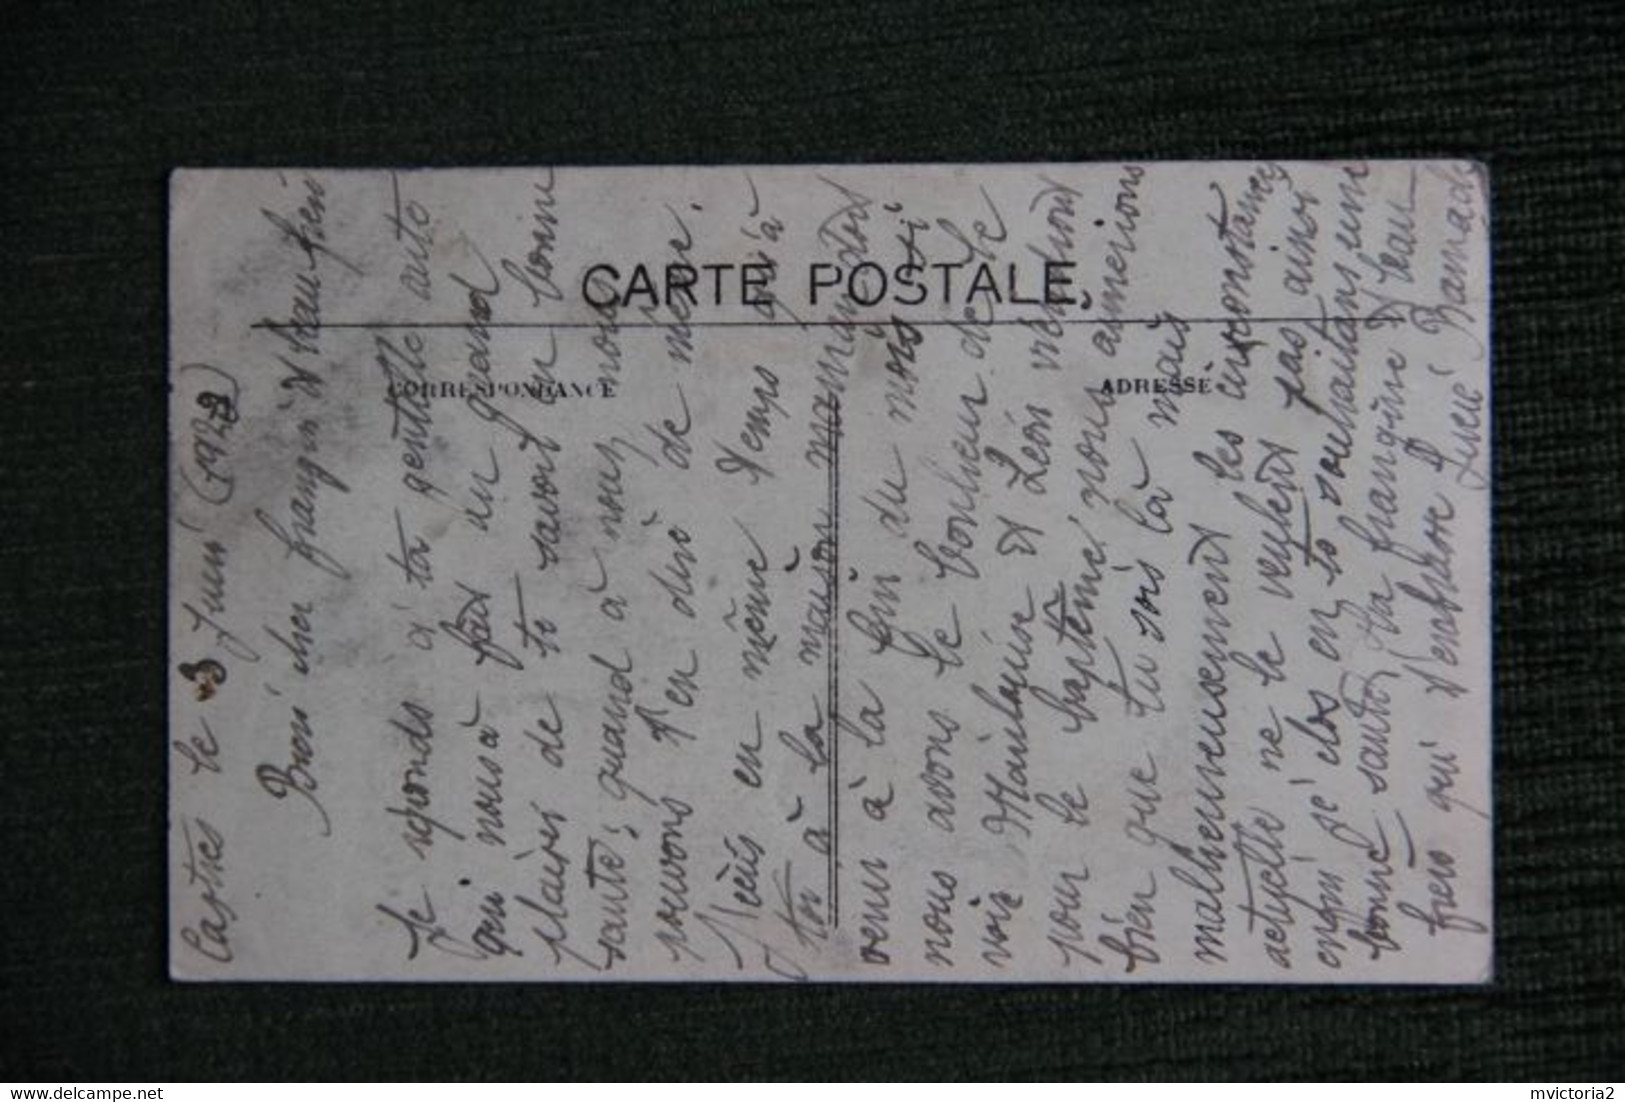 CARTE POSTALE
CORRESPONDANCE
ADRESSE
Castres le 3 Juin 1922
Bien cher frangin et beau frère
Je reponds a ta gentille auto
qui nous a fait un grand
plaisir de te savoir en bonne
sante, quand à nous nous
pouvons t'en dire de même.
J'écris en même temps qu'à
toi à la maison maman doit
venir à la fin du mois si
nous avons le bonheur de le
voir Marilouise et Léon viendront
pour le baptême, nous aimerions
bien que tu sois là mais
malheureusement les circonstances
actuelle ne le veulent pas ainsi
enfin je clos en te souhaitans une
bonne santé ta frangine et beau
frère qui t'embrasse Lucie
mvictoria2